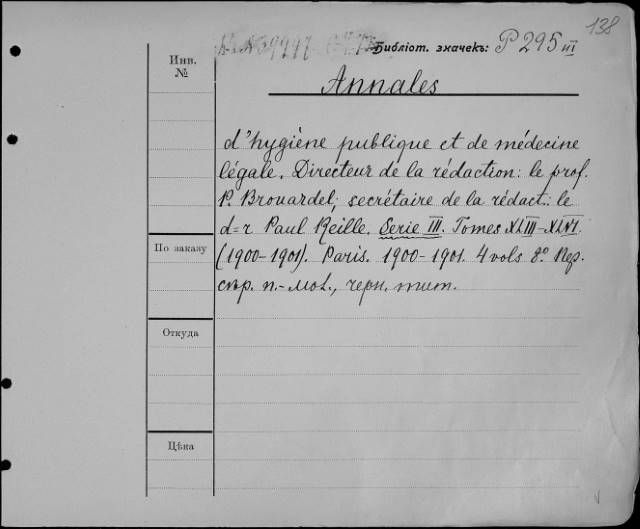 138
Библіот. значекъ: P 295 III
Инв.
№
Annales
d'hygiène publique et de médecine
légale. Directeur de la rédaction: le prof.
P. Brouardel; secrétaire de la rédact.: le
d=r Paul Reille. Serie III. Tomes XLIII-XLVI.
По заказу
(1900-1901). Paris. 1900-1901. 4 vols 8º Пер.
сѣр. п.-мол., черн. тит.
Откуда
Цѣна